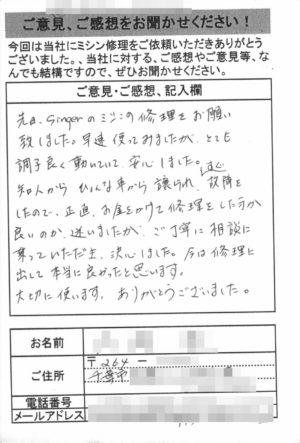 ご意見、ご感想をお聞かせください！
今回は当社にミシン修理をご依頼いただきありがとう
ございました。、当社に対する、ご感想やご意見等、な
んでも結構ですので、ぜひお聞かせください。
ご意見・ご感想、記入欄
先日、Singerのミシンの修理をお願い
致しました。早速使ってみましたが、とても
調子良く動いていて、安心しました。
知人から ひょんな事から譲られ、故障を
したので、正直、お金をかけて修理をした方が
良いのか、迷いましたが、ご丁寧に相談に
乗っていただき、決心しました。今は修理に
出して本当に良かったと思います。
大切に使います。ありがとうございました。
お名前
ご住所
〒264 ー
千葉市
電話番号
メールアドレス